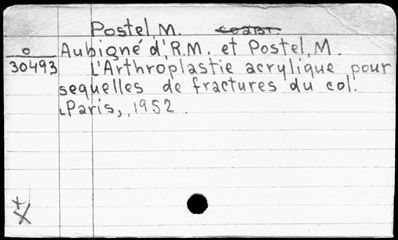 Postel, M. coaut.
o Aubigné d', R.M. et Postel, M.
30493 L'Arthroplastie acrylique pour
sequelles de fractures du col.
Paris, 1952.